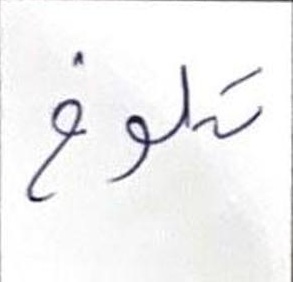 تلوغ